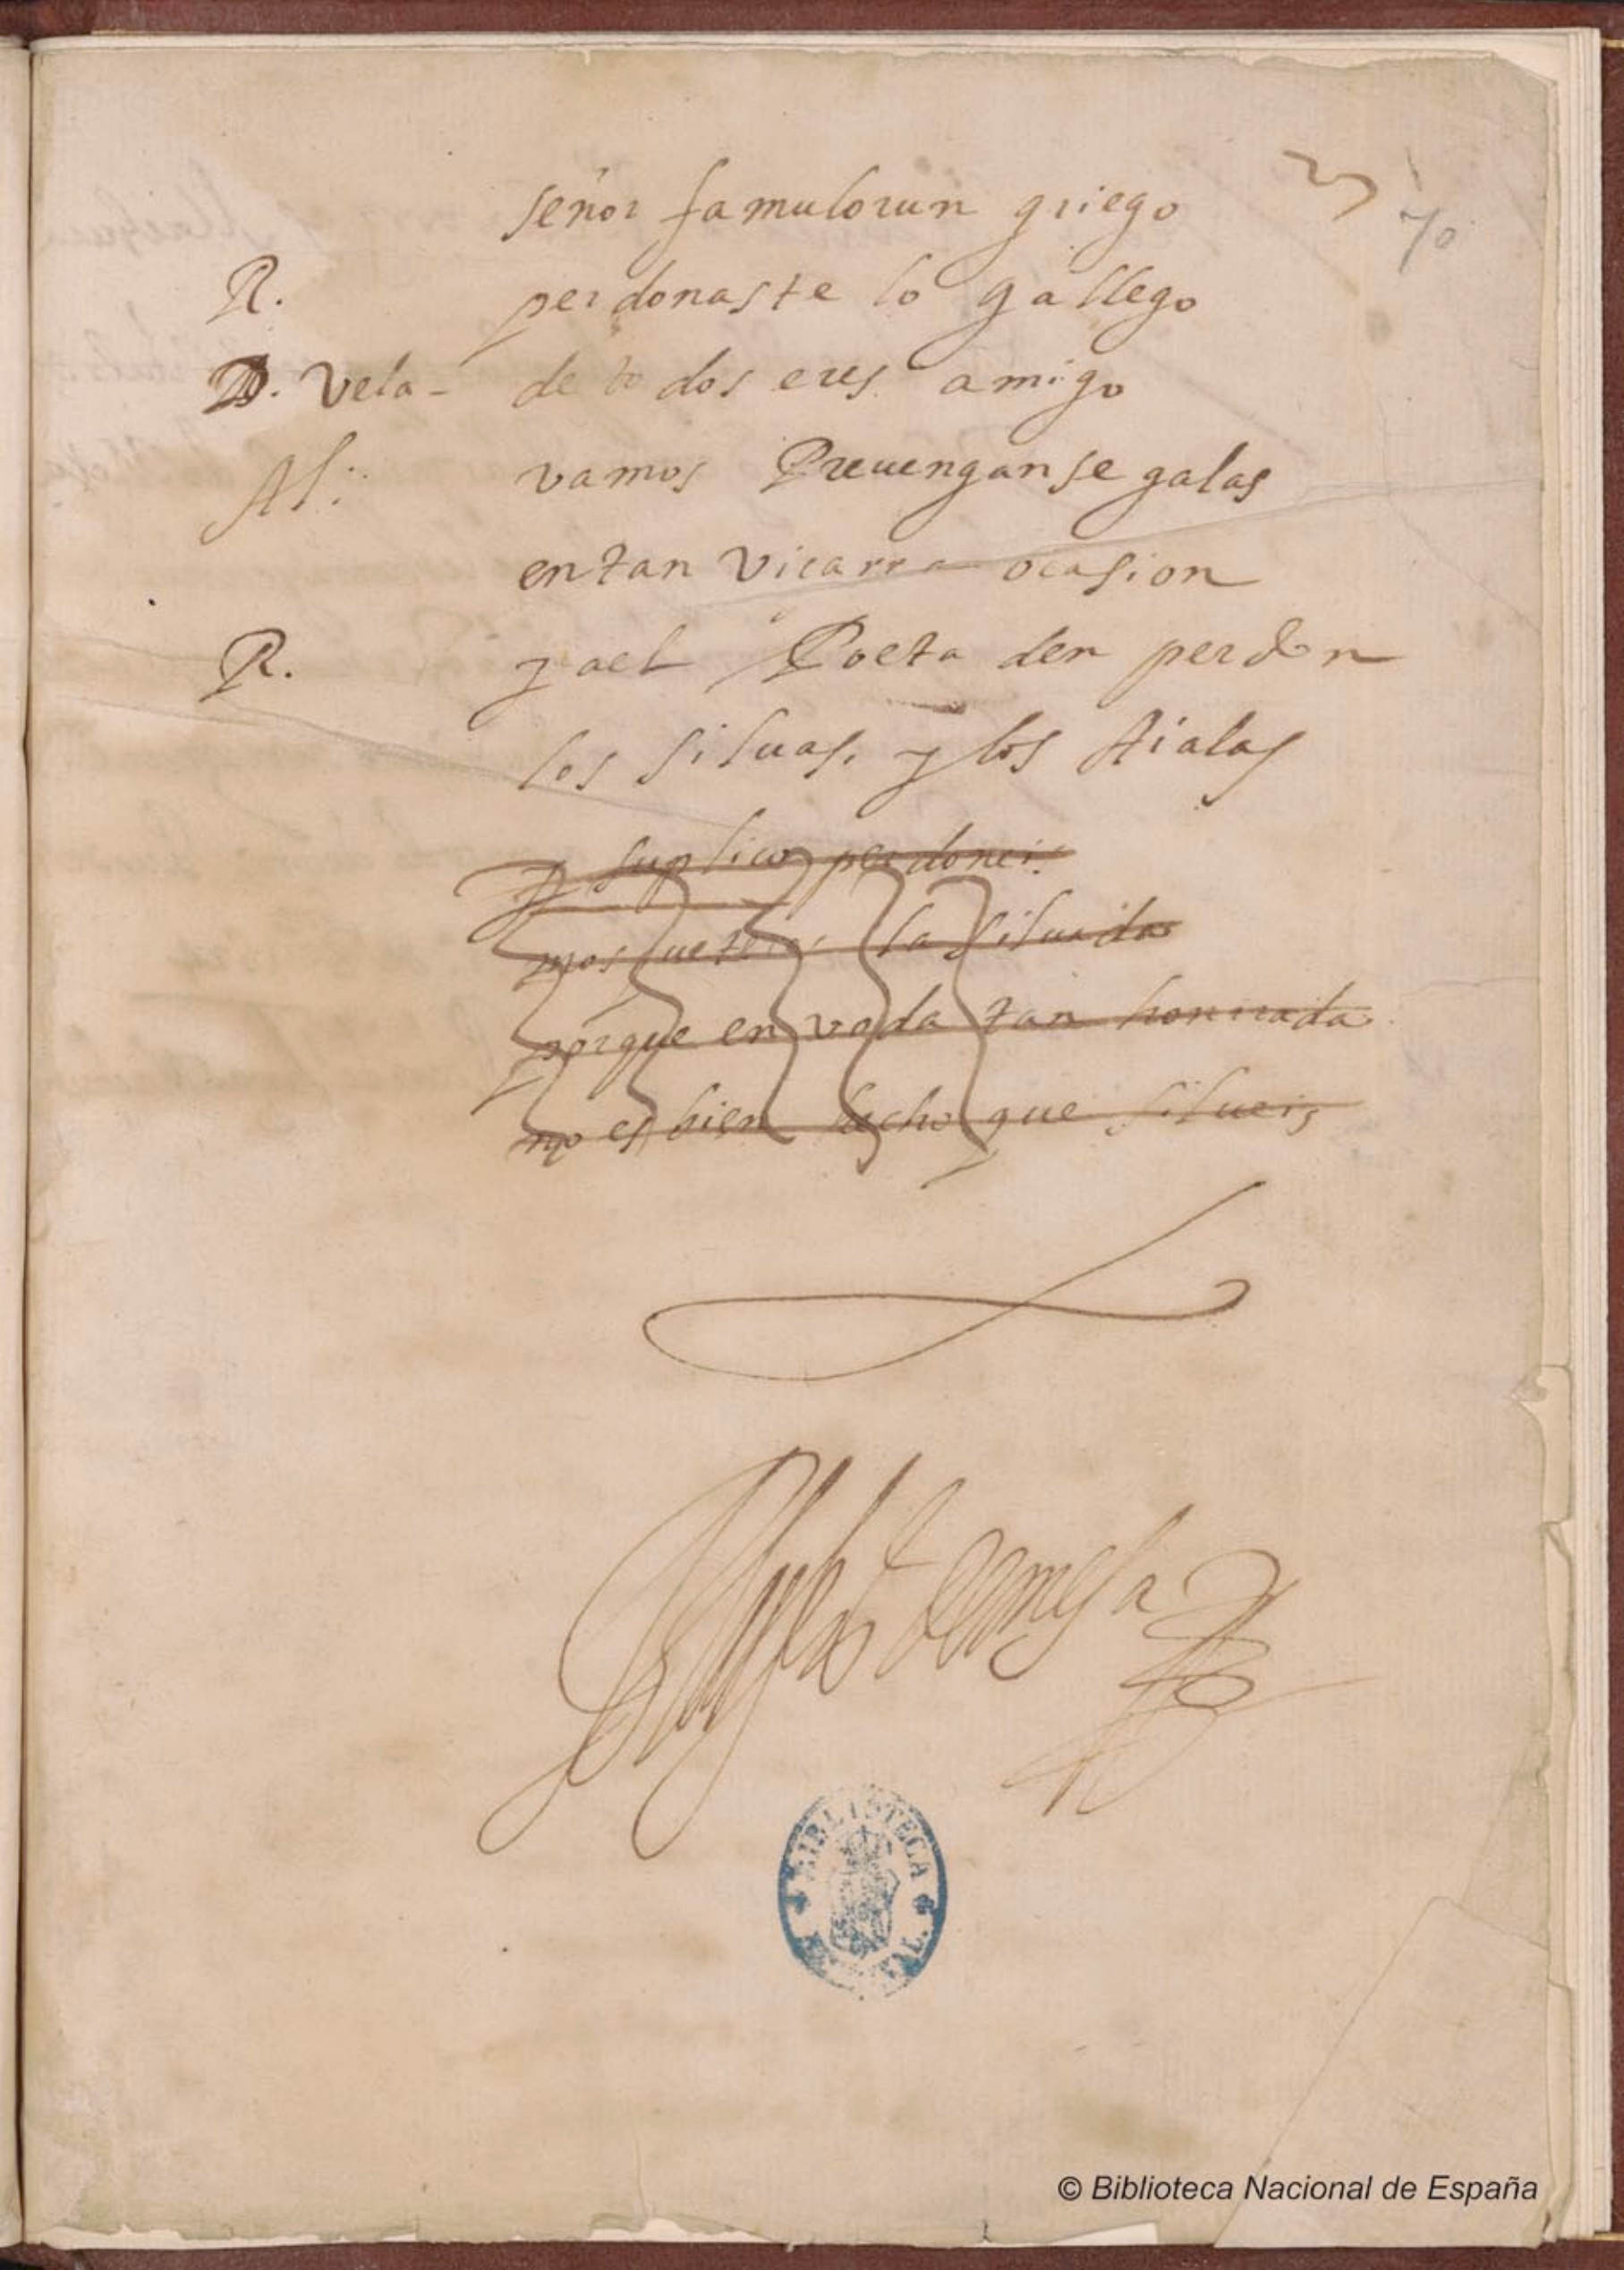 70
señor famulorun griego
R. perdonaste lo gallego
D. Vela - de todos eres amigo
Al: vamos Preuenganse galas
entan vicarra ocasion
R. y ael Poeta den perdon
los siluas, y los Aialas
suplico perdoneis
mosqueteros la siluada
porque en voda tan honrrada
no es bien hecho que silueis
BIBLIOTECA
© Biblioteca Nacional de España